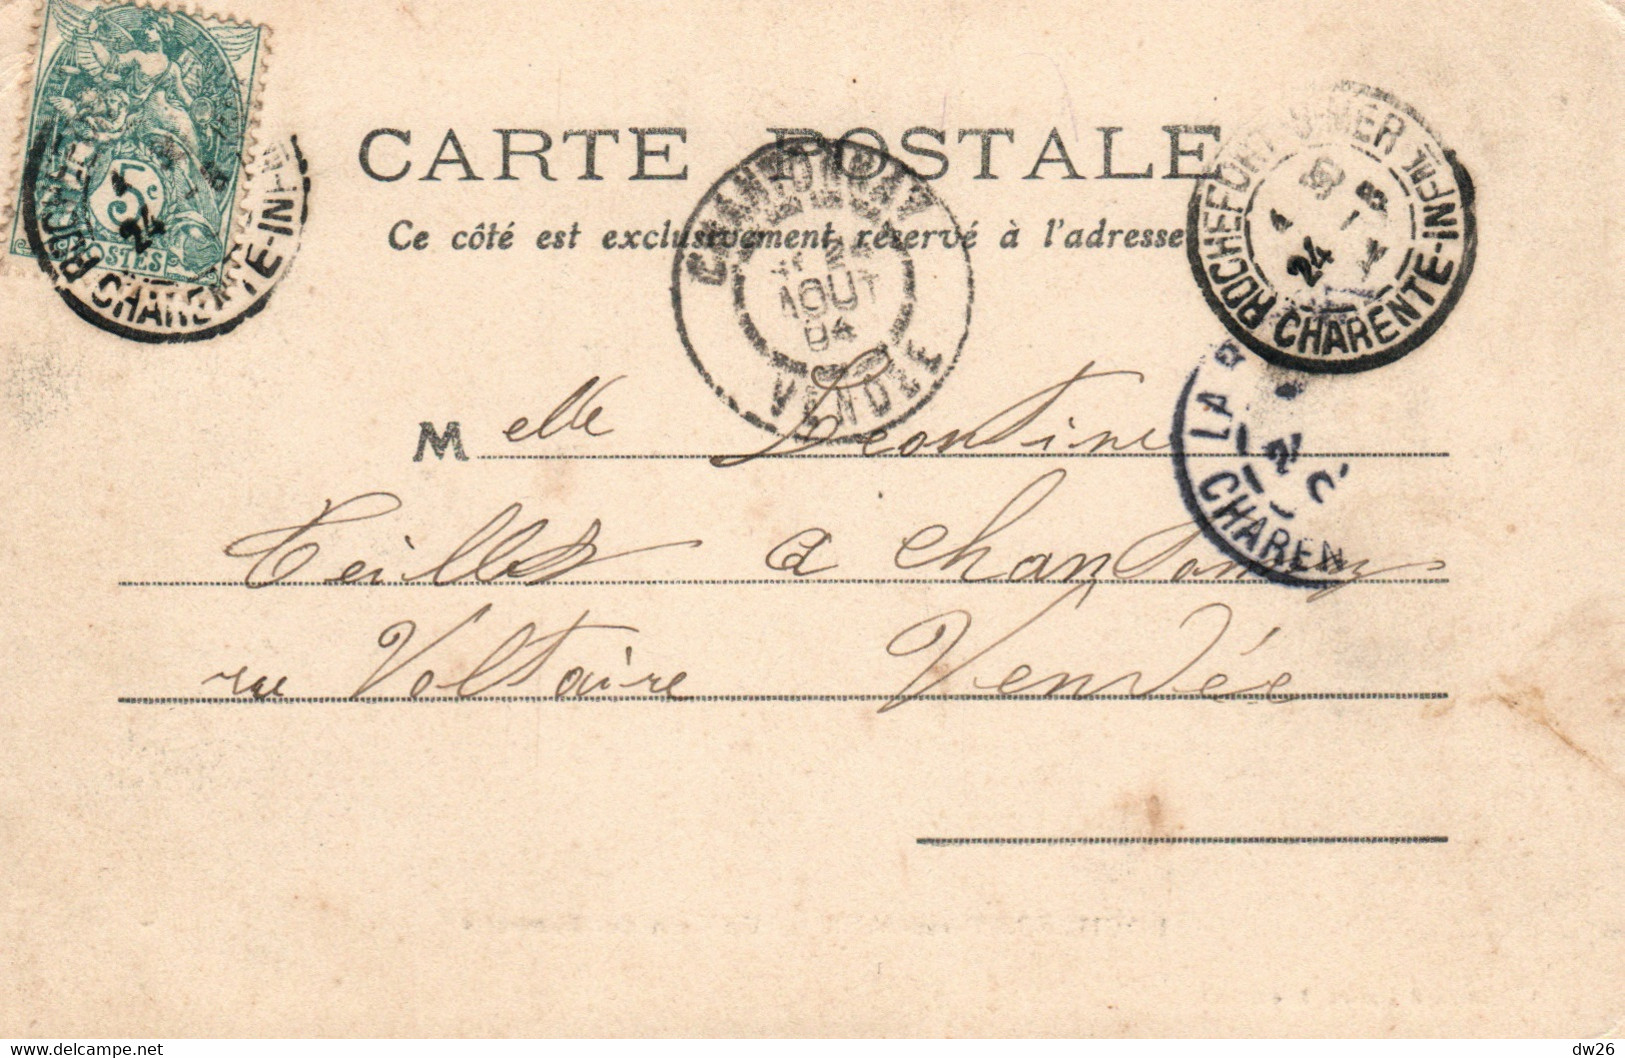 5c
POSTES
24
CHARENTE-INF
CARTE POSTALE
Ce côté est exclusivement réservé à l'adresse
CHANTONNAY
AOUT
04
VENDEE
ROCHEFORT-S-MER
24
CHARENTE-INFRE
LA
CHAREN
Melle Léontine
à Chantonnay
rue Voltaire Vendée
dw26